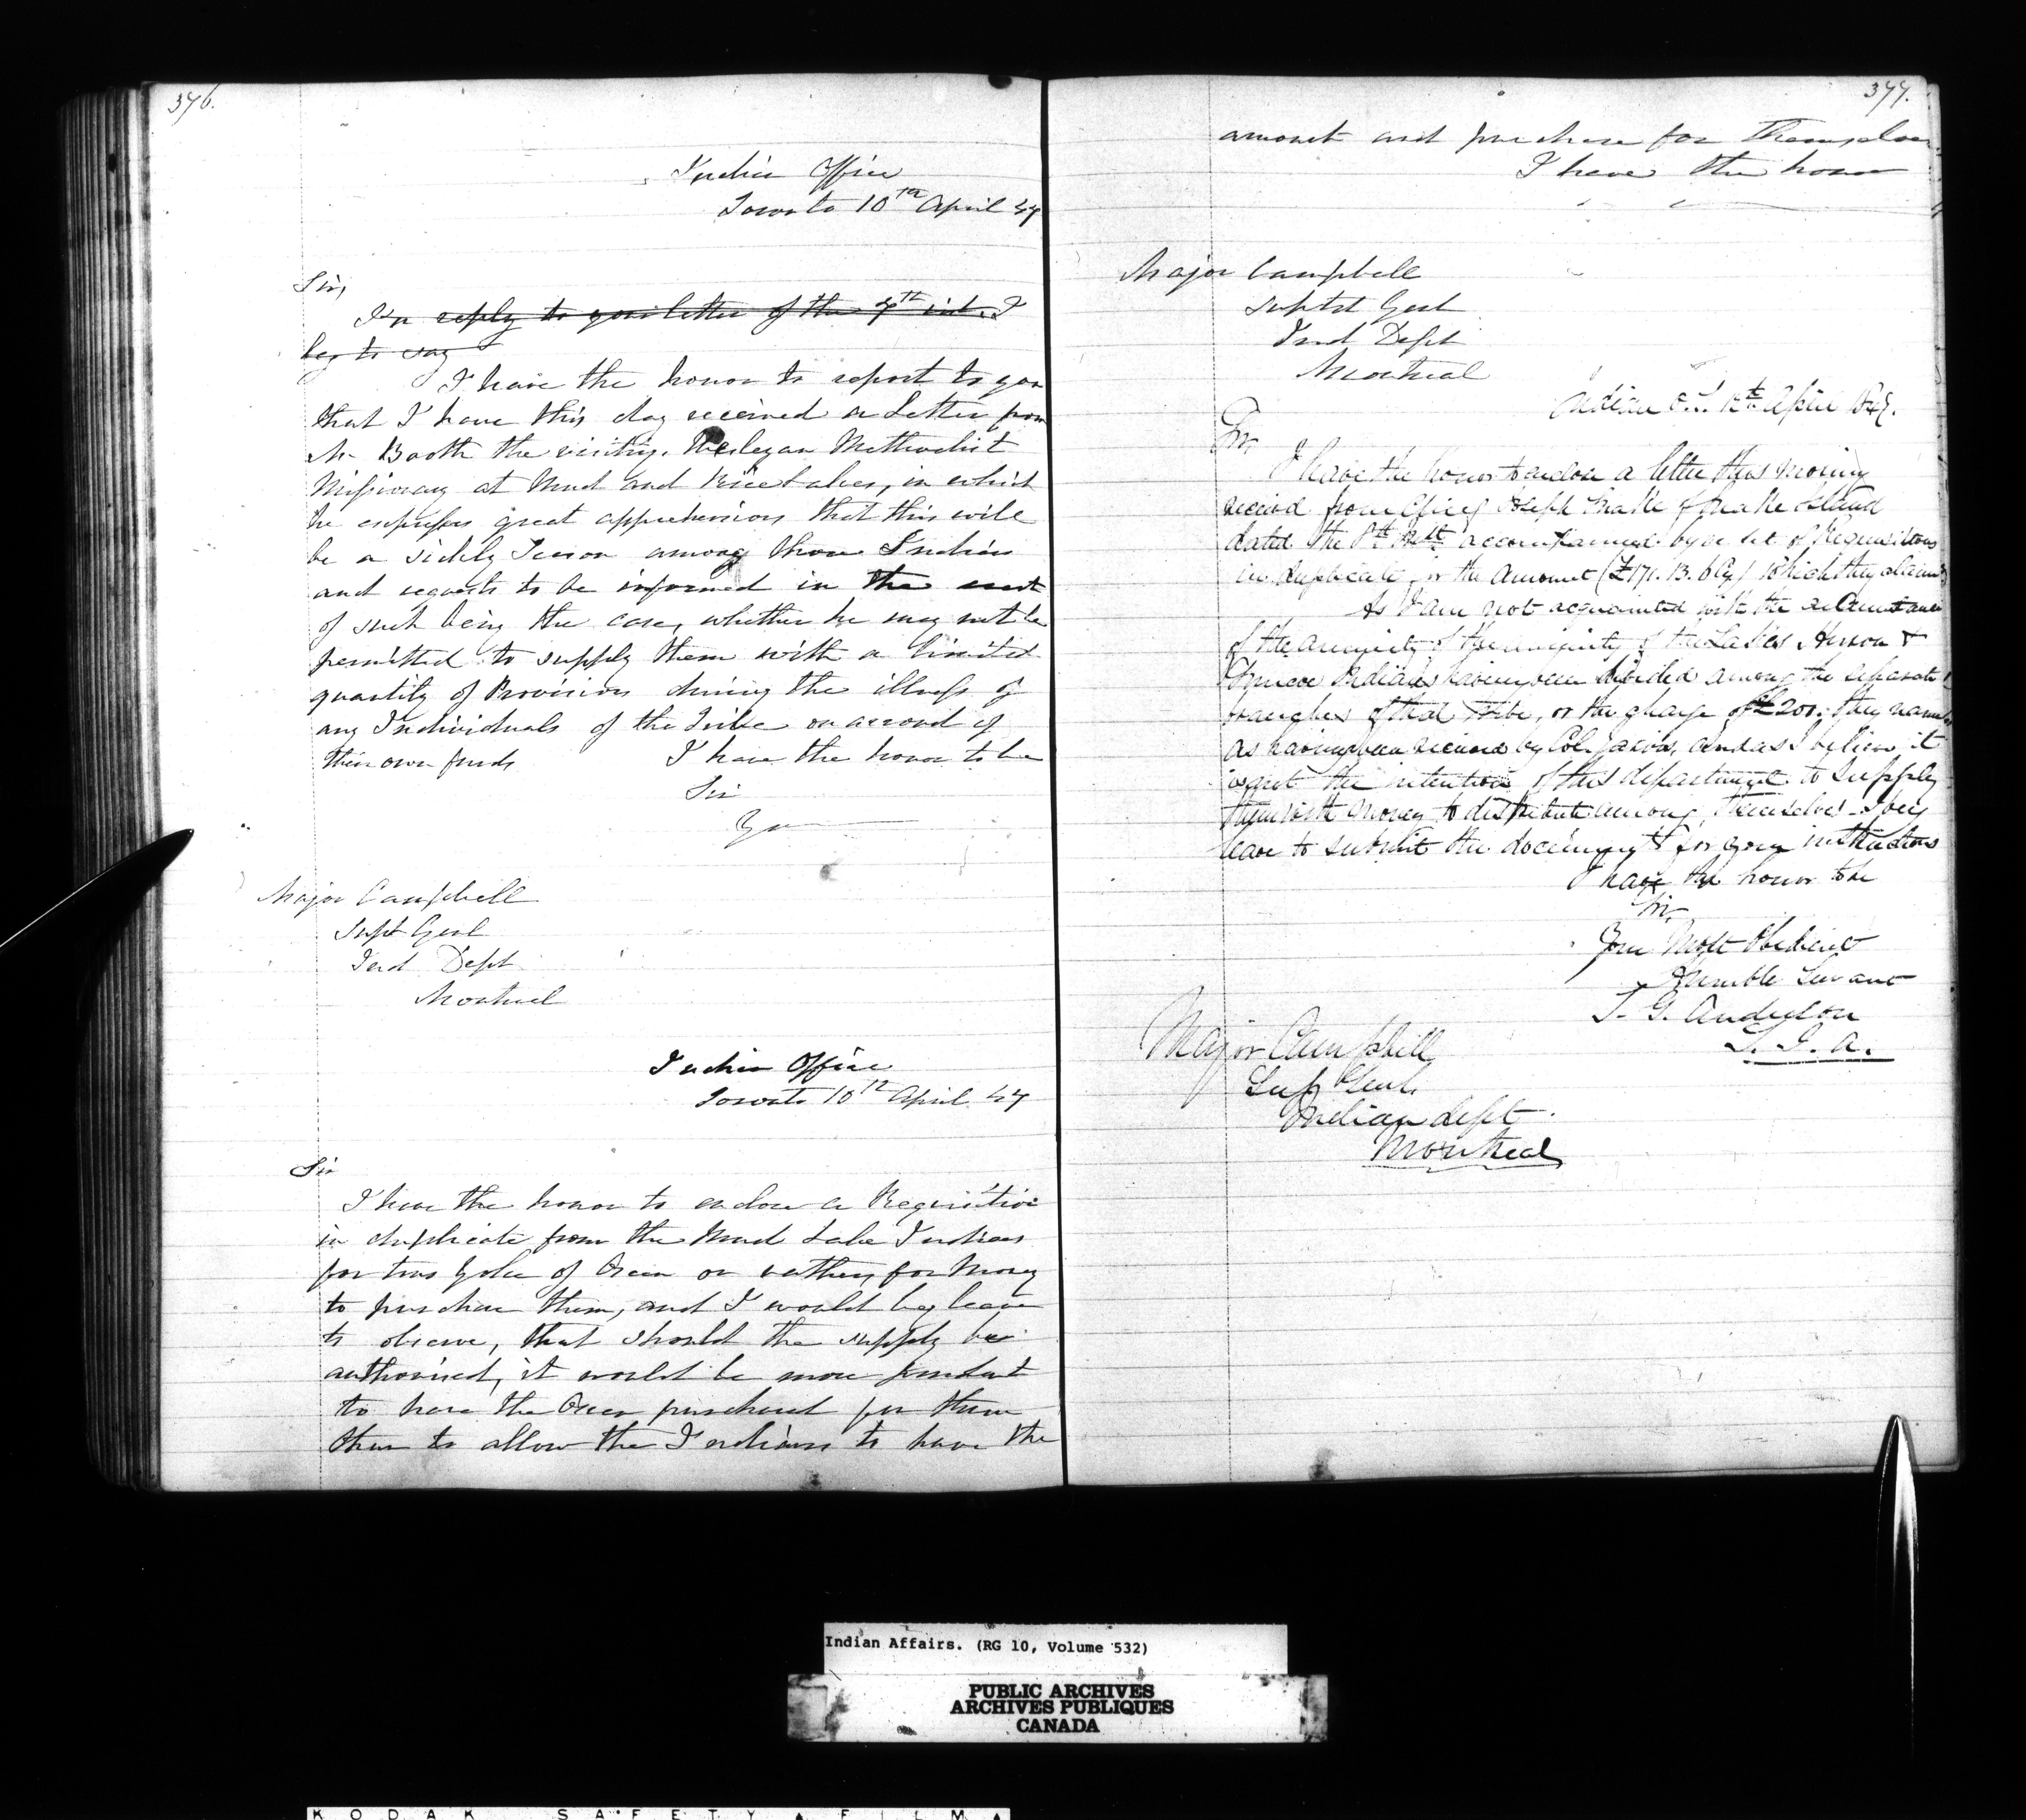 376.
Indian Office
Toronto 10th April 47
Sir,
In reply to your letter of the 7th inst. I
beg to say
I have the honor to report to you
that I have this day received a Letter from
Mr Booth the visiting Wesleyan Methodist
Missionary at Mud and Rice Lakes, in which
he expresses great apprehensions that this will
be a sickly Season among those Indians
and requests to be informed in the event
of such being the case, whether he may not be
permitted to supply them with a limited
quantity of Provisions during the illness of
any Individuals of the Tribe on account of
their own funds I have the honor to be
Sir
Your
Major Campbell
Supt Genl
Ind Dept
Montreal
Indian Office
Toronto 10th April 47
Sir
I have the honor to enclose a Requisition
in duplicate from the Mud Lake Indians
for two Yokes of Oxen or rather, for Money
to purchase them, and I would beg leave
to observe, that should the supply be
authorised, it would be more prudent
to have the Oxen purchased for them
than to allow the Indians to have the
377.
amount and purchase for themselves.
I have the honor
Major Campbell
Suptdt Genl
Ind Dept
Montreal
Indian O. T. 12th April 1847.
Sir,
I have the honor to enclose a letter this morning
received from Chief Joseph Snake of Snake Island
dated the 8th Inst accompanied by a set of Requisitions
in duplicate, for the amount (£171. 13. 6 Cy) which they claim
As I am not acquainted with the circumstances
of the annuity of the majority of the Lakes Huron &
Simcoe Indians having been divided among the separate
branches of that Tribe, or the charge of £200. they name
as having been received by Col. Jarvis, and as I believe it
is not the intention of this department to supply
them with money to distribute among themselves I beg
leave to submit the documents for your instructions
I have the honor to be
Sir
Your Most Obedient
Humble Servant
T. G. Anderson
S. I. A.
Major Campbell
Sup Genl.
Indian dept.
Montreal
Indian Affairs. (RG 10, Volume 532)
PUBLIC ARCHIVES
ARCHIVES PUBLIQUES
CANADA
KODAK SAFETY FILM